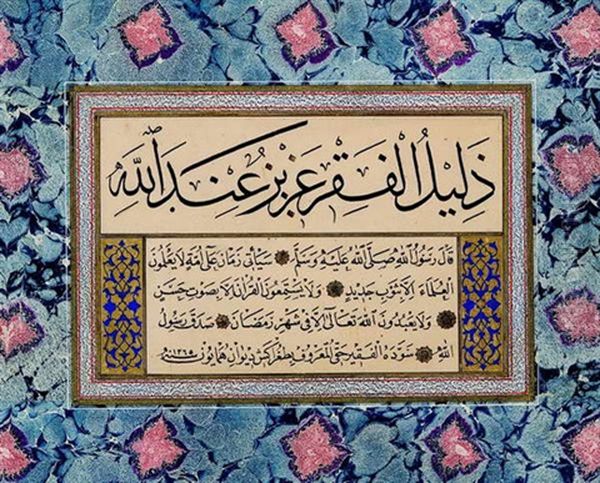 ذَلِيلُ الفَقرِ عَزِيزٌ عِندَ اللهِ
قَالَ رَسُولُ اللهِ صَلَّى اللهُ عَلَيْهِ وَسَلَّمَ سَيَأْتِي زَمَانٌ عَلَى أُمَّتِي لَا يَعْلَمُونَ
العُلَمَاءَ إِلَّا بِثَوْبٍ جَدِيدٍ وَلَا يَسْتَمِعُونَ القُرْآنَ إِلَّا بِصَوْتٍ حَسَنٍ
وَلَا يَعْبُدُونَ اللهَ تَعَالَى إِلَّا فِي شَهْرِ رَمَضَانَ صَدَقَ رَسُولُ
اللهِ سَوَّدَهُ الفَقِيرُ حَقِّي المَعْرُوفُ بِطُغْرَاكَشِ دِيوَانِ هُمَايُون